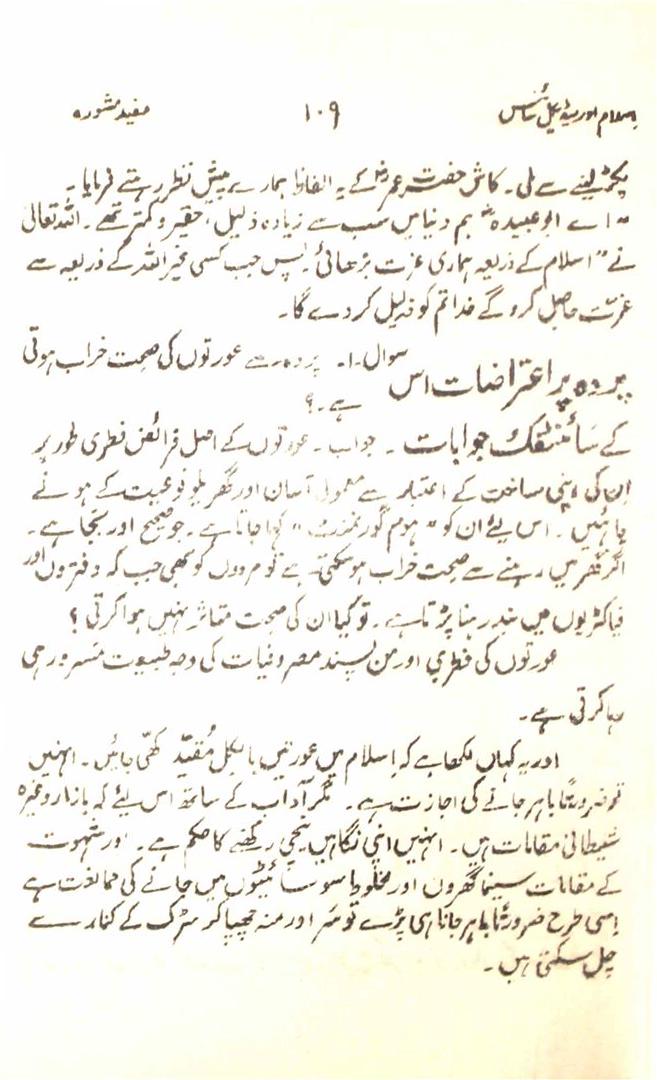 اسلام اور میڈیکل سائنس ۱۰۹ مفید مشورہ
پکڑ لینے سے ملی۔ کاش حضرت عمرؓ کے یہ الفاظ ہمارے پیش نظر رہتے فرمایا۔
"اے ابو عبیدہؓ ہم دنیا میں سب سے زیادہ ذلیل، حقیر و کمتر تھے۔ اللہ تعالیٰ
نے "اسلام کے ذریعہ ہماری عزت بڑھائی۔ پس جب کسی غیر اللہ کے ذریعہ سے
عزت حاصل کرو گے خدا تم کو ذلیل کر دے گا۔
پردہ پر اعتراضات اس سوال۔۱۔ پردہ سے عورتوں کی صحت خراب ہوتی
ہے۔؟
کے سائنٹفک جوابات ۔ جواب۔ عورتوں کے اصل فرائض فطری طور پر
ان کی اپنی ساخت کے اعتبار سے معمولی آسان اور گھریلو نوعیت کے ہونے
چاہئیں۔ اس لیئے ان کو "ہوم گورنمنٹ" کہا جاتا ہے۔ جو صحیح اور بجا ہے۔
اگر گھر میں رہنے سے صحت خراب ہو سکتی ہے تو مردوں کو بھی جب کہ دفتروں اور
فیاکٹریوں میں بند رہنا پڑتا ہے۔ تو کیا ان کی صحت متاثر نہیں ہوا کرتی؟
عورتوں کی فطری اور من پسند مصروفیات کی وجہ طبیعت مسرور ہی
رہا کرتی ہے۔
اور یہ کہاں لکھا ہے کہ اسلام میں عورتیں بالکل مُقیّد رکھّی جائیں۔ انہیں
تو ضرورتاً باہر جانے کی اجازت ہے۔ مگر آداب کے ساتھ اس لیئے کہ بازار وغیرہ
شیطانی مقامات ہیں۔ انہیں اپنی نگاہیں نیچی رکھنے کا حکم ہے۔ اور شہوت
کے مقامات سینما گھروں اور مخلوط سوسائیٹیوں میں جانے کی ممانعت ہے
اسی طرح ضرورتاً باہر جانا ہی پڑے تو سَر اور منہ چھپا کر سڑک کے کنارے سے
چل سکتی ہیں۔